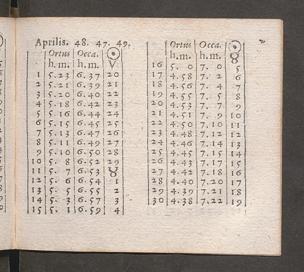 Aprilis. 48. 47. 49.
Ortus Occa. ☉
h. m. h. m. ♈
1 5.23 6.37 20
2 5.21 6.39 21
3 5.20 6.40 22
4 5.18 6.42 23
5 5.16 6.44 24
6 5.15 6.45 25
7 5.13 6.47 26
8 5.11 6.49 27
9 5.10 6.50 28
10 5. 8 6.52 29
11 5. 7 6.53 ♉
12 5. 6 6.54 1
13 5. 5 6.55 2
14 5. 3 6.57 3
15 5. 1 6.59 4
Ortus Occa. ☉
h. m. h. m. ♉
16 5. 0 7. 0 5
17 4.58 7. 2 6
18 4.56 7. 4 7
19 4.55 7. 5 8
20 4.53 7. 7 9
21 4.51 7. 9 10
22 4.50 7.10 11
23 4.48 7.12 12
24 4.46 7.14 13
25 4.45 7.15 14
26 4.43 7.17 15
27 4.42 7.18 16
28 4.40 7.20 17
29 4.39 7.21 18
30 4.38 7.22 19